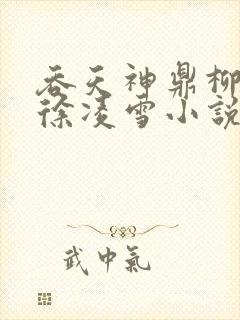 吞天神鼎柳
徐凌雪小說
武中氣